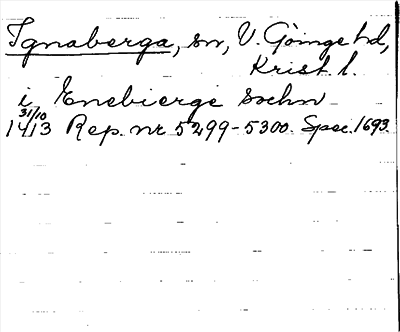 Ignaberga, sn, V. Göinge hd,
Krist. l.
i Enebierge sochn
31/10
1413 Rep. nr 5299-5300. Spec. 1693.